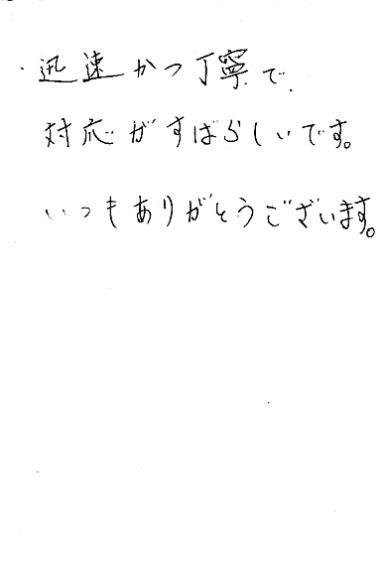 ・迅速かつ丁寧で、
対応がすばらしいです。
いつもありがとうございます。